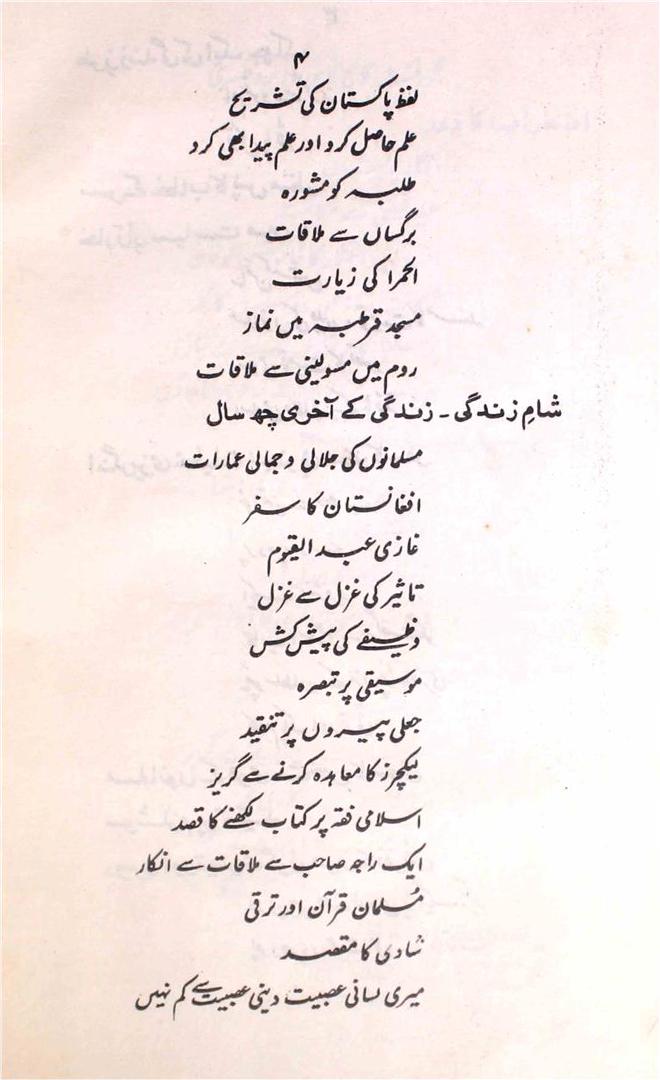 ۴
لفظ پاکستان کی تشریح
علم حاصل کرو اور علم پیدا بھی کرو
طلبہ کو مشورہ
برگساں سے ملاقات
الحمرا کی زیارت
مسجد قرطبہ میں نماز
روم میں مسولینی سے ملاقات
شامِ زندگی ۔ زندگی کے آخری چھ سال
مسلمانوں کی جلالی و جمالی عمارات
افغانستان کا سفر
غازی عبد القیوم
تاثیر کی غزل سے غزل
وظیفے کی پیش کش
موسیقی پر تبصرہ
جعلی پیروں پر تنقید
لیکچرز کا معاہدہ کرنے سے گریز
اسلامی فقہ پر کتاب لکھنے کا قصد
ایک راجہ صاحب سے ملاقات سے انکار
مُسلمان قرآن اور ترقی
شادی کا مقصد
میری لسانی عصبیت دینی عصبیت سے کم نہیں